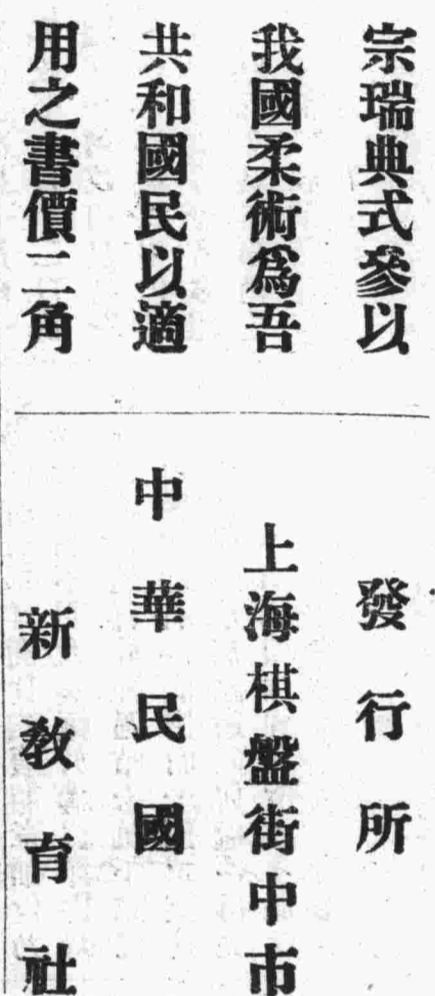 宗瑞典式參以
我國柔術爲吾
共和國民以適
用之書價二角
發行所
上海棋盤街中市
中華民國
新敎育社